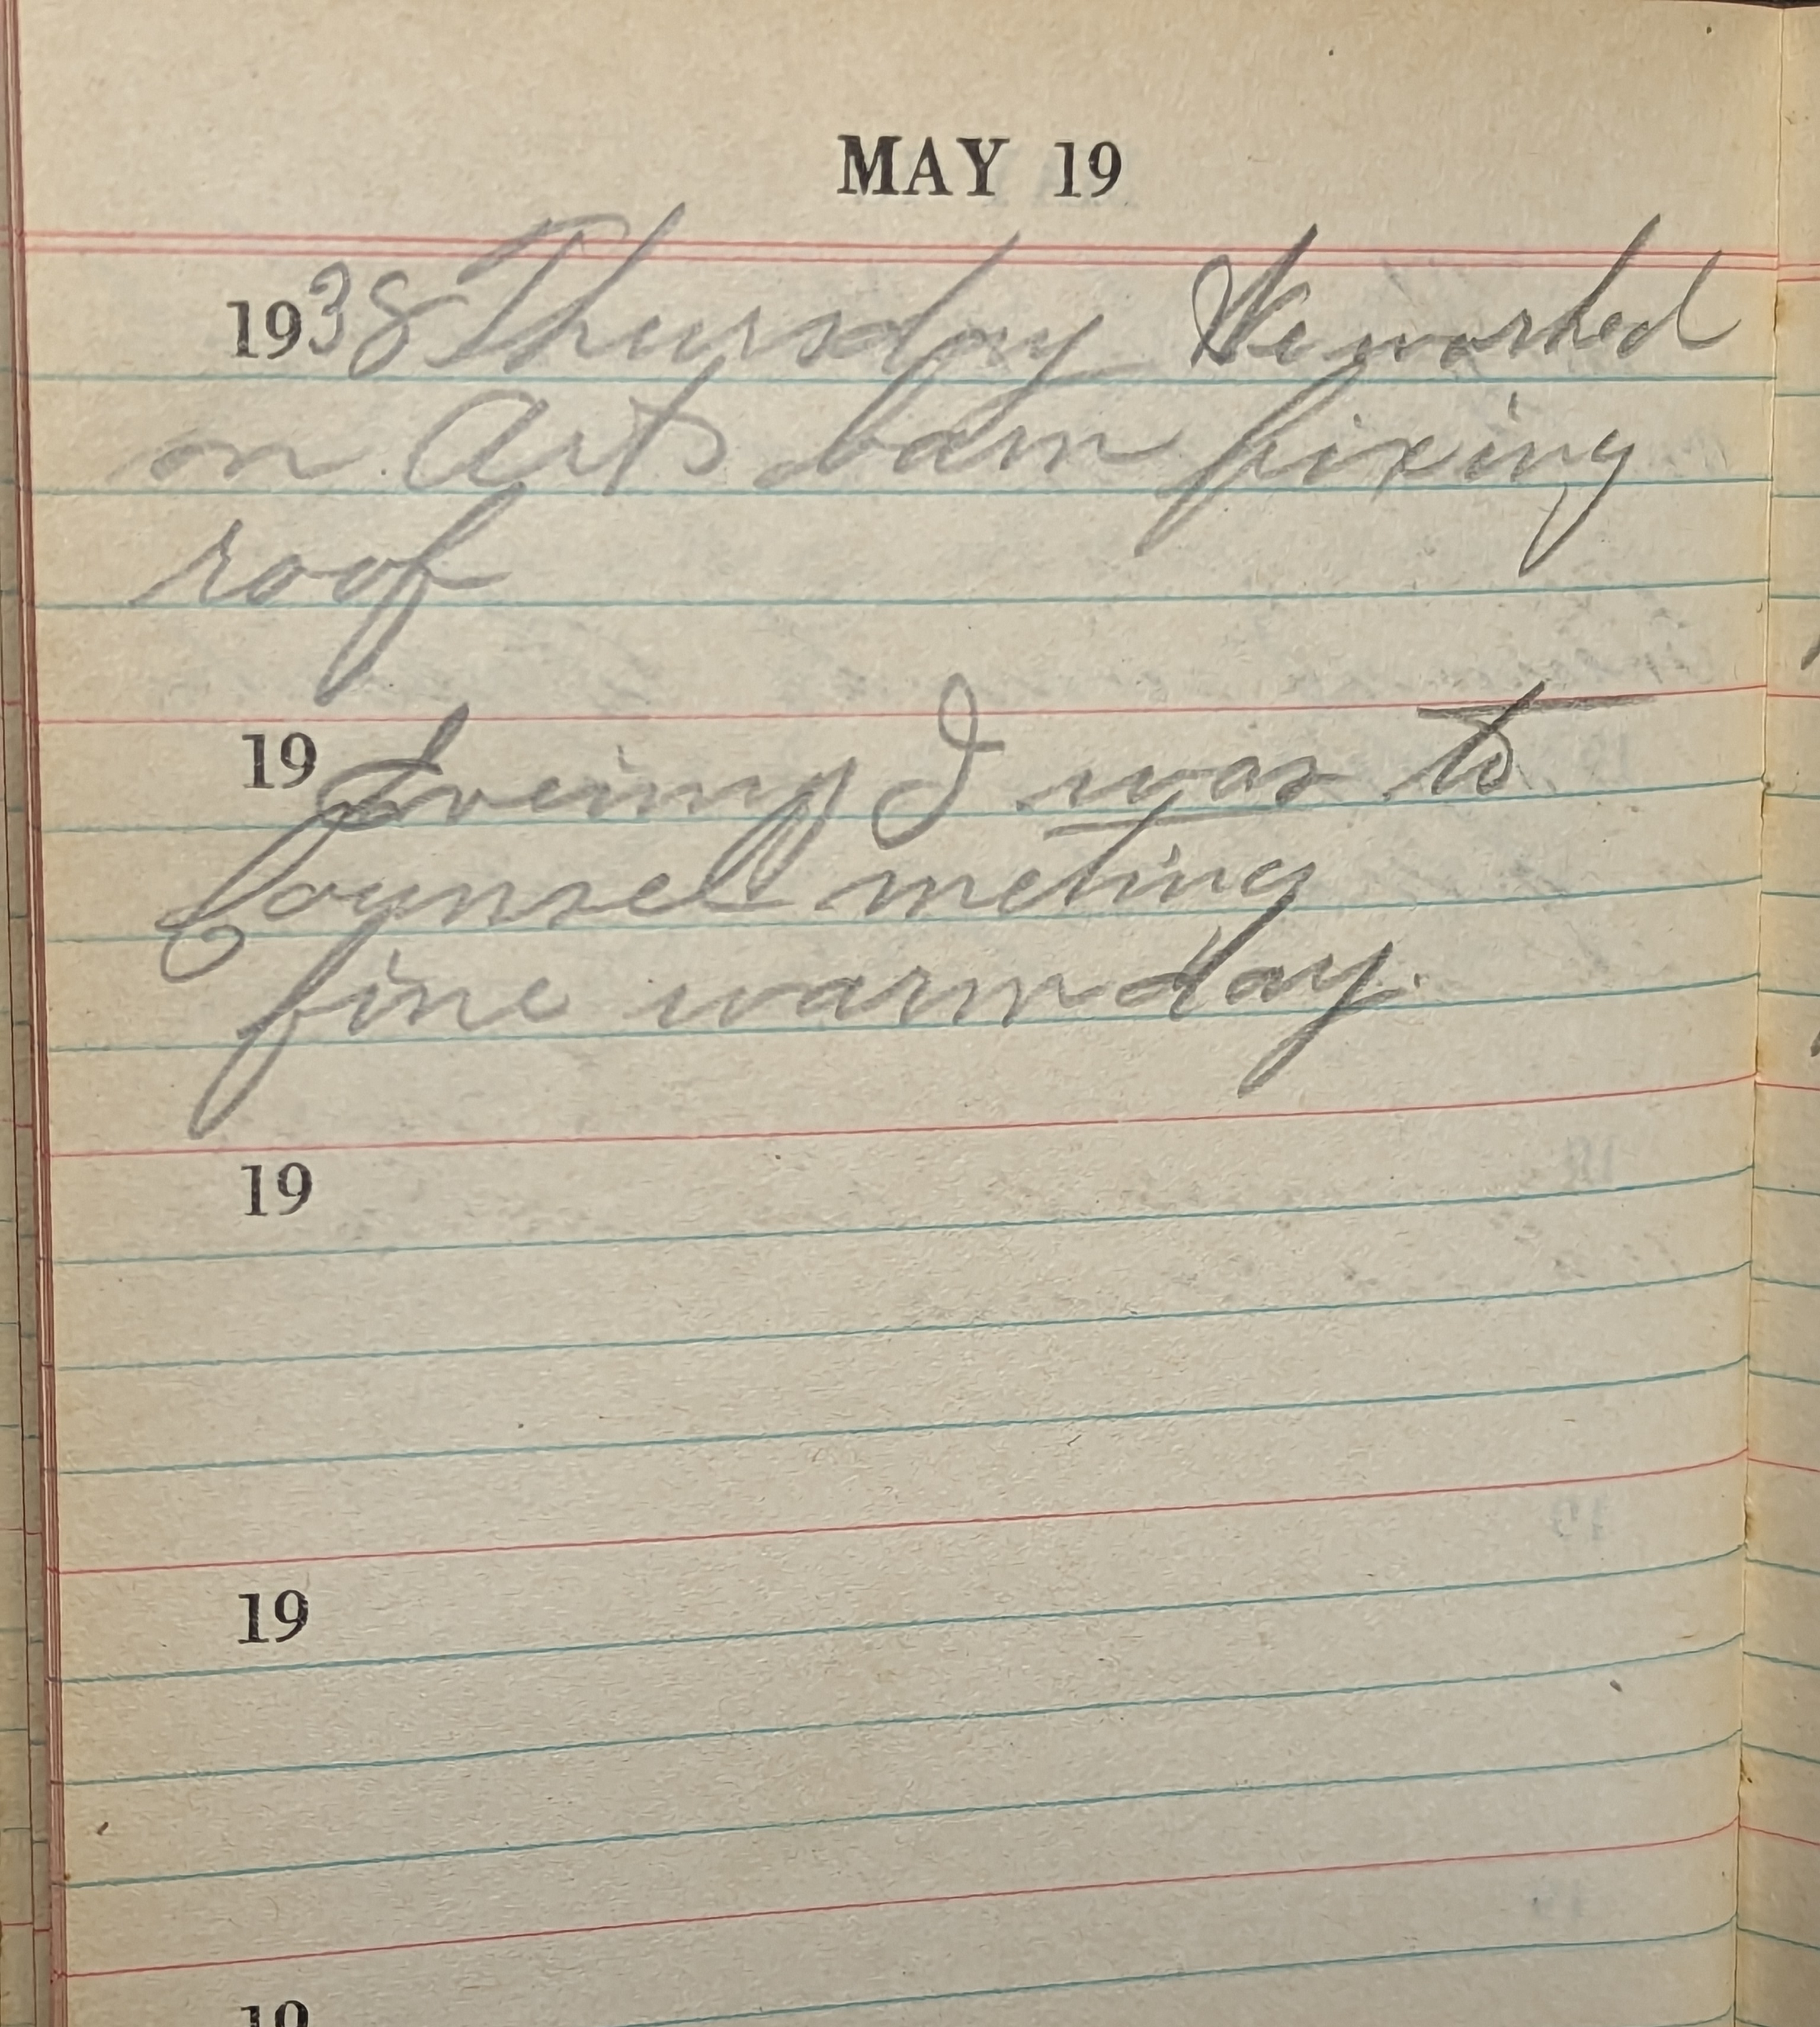 MAY 19
1938 Thursday We worked
on Arts barn fixing
roof
19 Eveing I was to
Counsel meting
fine warm day.
19
19
19